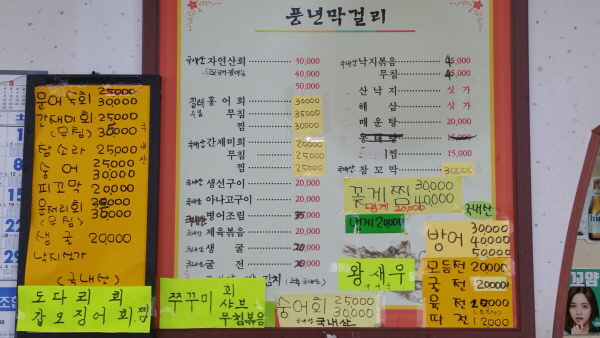 풍년막걸리
문어숙회 25000
30000
간재미회 25000
(무침) 30000
국내산
참소라 25000
30000
숭어 25000
30000
피꼬막 20000
30000
(무침)
생굴 20000
낙지 싯가
(국내산)
도다리 회
갑오징어 회.찜
국내산 자연산회 30,000
40,000
50,000
칠레 홍어회 30000
무침 35000
찜 30000
국내산 간재미회 20000
무침 25000
찜 25000
국내산 생선구이 20,000
국내산 아나고구이 20,000
병어조림 35,000
국내산 제육볶음 20,000
국내산 생굴 20,000
국내산 굴전 20,000
김치
국내산 낙지볶음 45,000
무침 45,000
산낙지 싯가
해삼 싯가
매운탕 20,000
15,000
찜 15,000
국내산 참꼬막 30000
꽃게찜 30000
40000
20,000
20000
왕새우
쭈꾸미 회
샤브
무침볶음
숭어회 25000
30000
국내산 국내산
국내산
방어 30000
40000
50000
모듬전 20000
굴전 20000
육전 20000
파전 12000
꼬얌